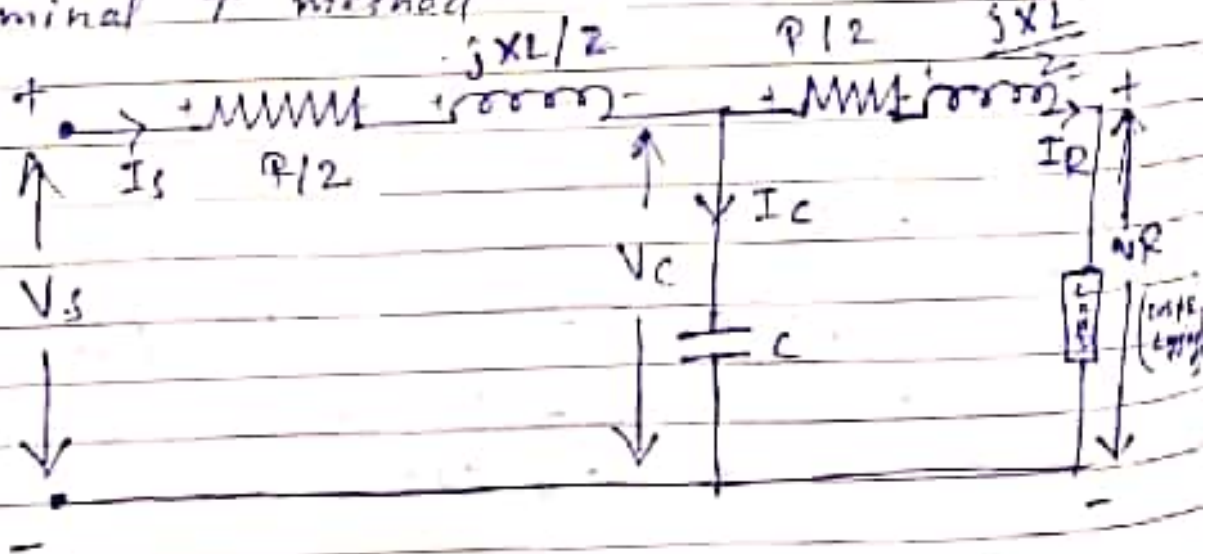 minal T method
jXL/2 R/2 jXL/2
+ + + - + +
Is R/2 IR
Ic
Vs Vc VR
C
Load
- -